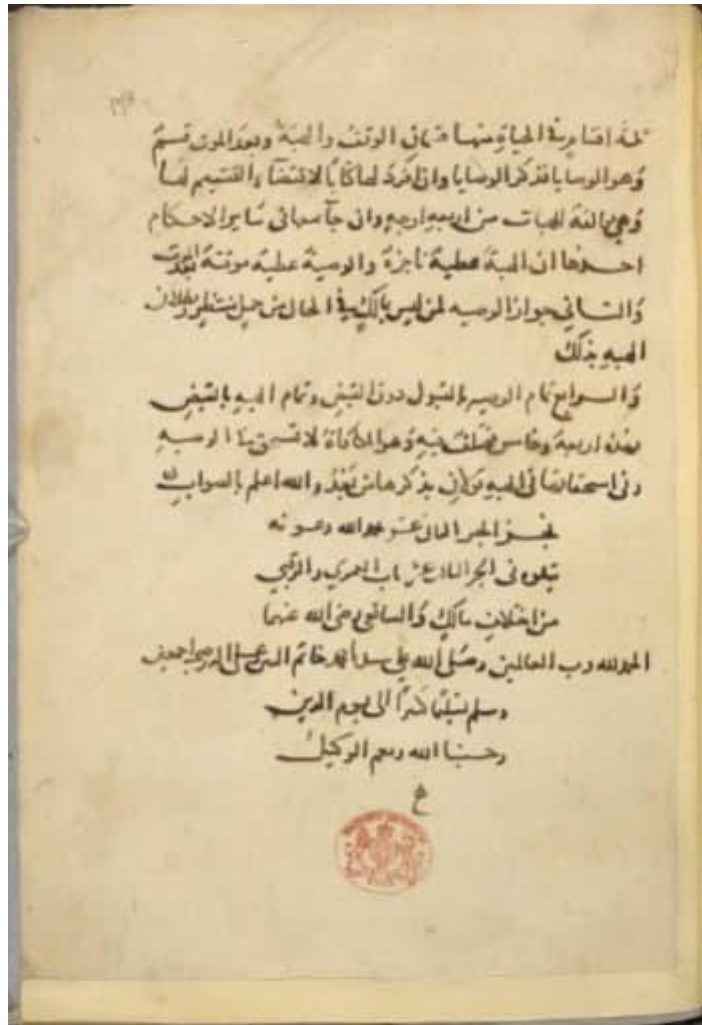 ثلثة اقسام في الحياة منها قسمان الوقف والهبة وبعد الموت قسم
وهو الوصايا فذكر الوصايا وان افرد لها كتابا لاقتضاء التقسيم لها
وهي مخالفة للهبات من اربعة اوجه وان جامعها في ساير الاحكام
احدها ان الهبة عطية ناجزة والوصية عطية موقتة بعد الموت
والثاني جواز الوصيه لمن ليس بمالك في الحال من حمل منتظر وبطلان
الهبه بذلك
والرابع تمام الوصيه بالقبول دون القبض وتمام الهبه بالقبض
فهذه اربعة وخامس مختلف فيه وهو المكافاة لا تستحق في الوصيه
وفي استحقاقها في الهبه قولان يذكرها من بعد والله اعلم بالصواب
نجز الجزء عشر بحمد الله وعونه
يتلوه في الجزء عشر باب العمرى والرقبى
من اختلاف مالك والشافعي رضي الله عنهما
الحمد لله رب العالمين وصلى الله على سيدنا محمد خاتم النبيين وعلى اله وصحبه اجمعين
وسلم تسليما كثيرا الى يوم الدين
وحسبنا الله ونعم الوكيل